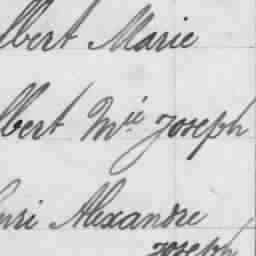 lbert Marie
lbert Mie Joseph
enri Alexandre
Joseph